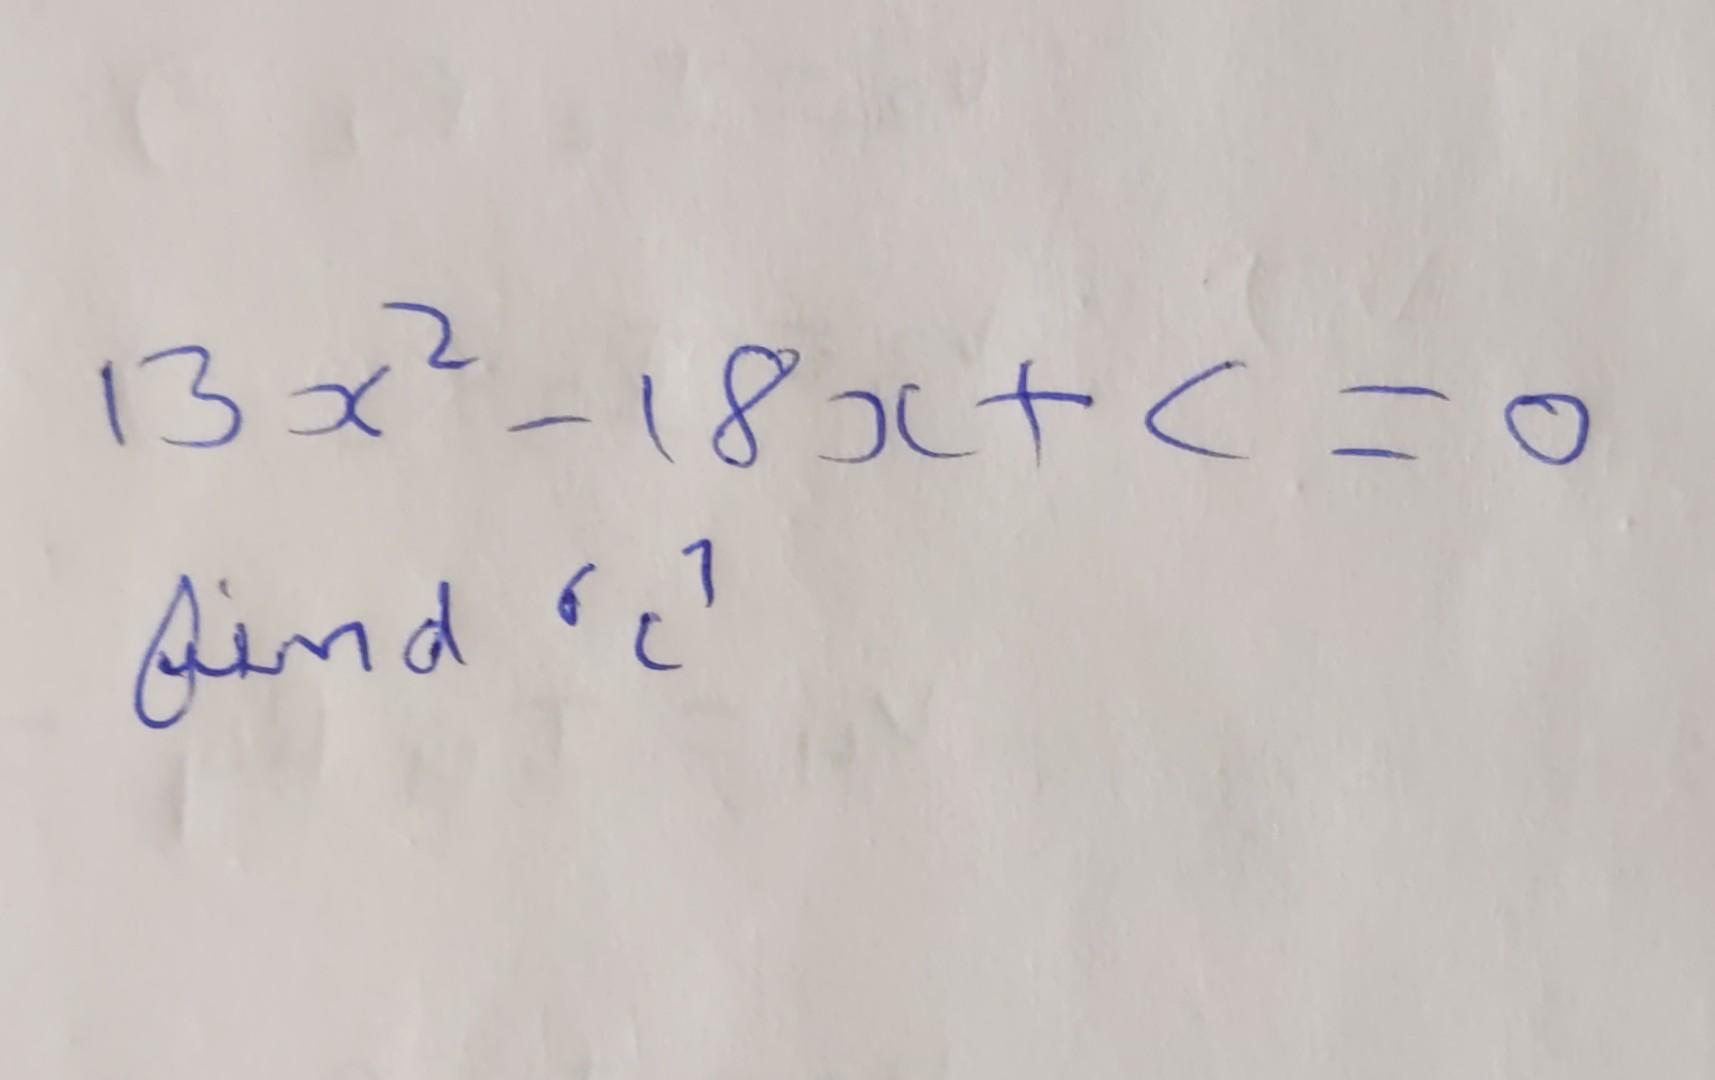 13x² - 18x + c = 0
find 'c'